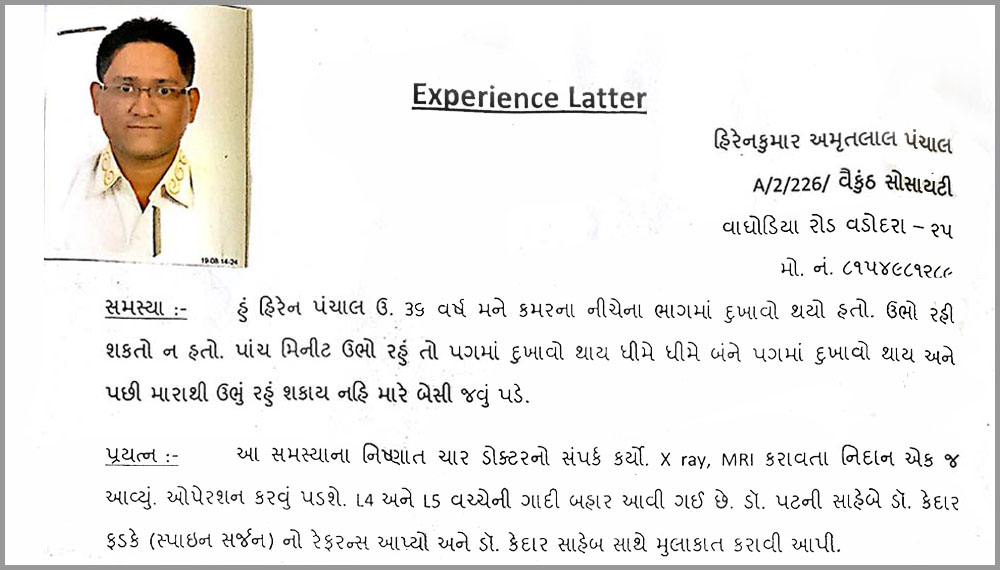 Experience Latter
હિરેનકુમાર અમૃતલાલ પંચાલ
A/2/226/ વૈકુંઠ સોસાયટી
વાઘોડિયા રોડ વડોદરા – ૨૫
મો. નં. ૮૧૫૪૯૮૧૨૮૯
19-08 14-24
સમસ્યા :- હું હિરેન પંચાલ ઉ. ૩૬ વર્ષ મને કમરના નીચેના ભાગમાં દુખાવો થયો હતો. ઉભો રહી
શકતો ન હતો. પાંચ મિનીટ ઉભો રહું તો પગમાં દુખાવો થાય ધીમે ધીમે બંને પગમાં દુખાવો થાય અને
પછી મારાથી ઉભું રહું શકાય નહિ મારે બેસી જવું પડે.
પ્રયત્ન :- આ સમસ્યાના નિષ્ણાત ચાર ડોક્ટરનો સંપર્ક કર્યો. X ray, MRI કરાવતા નિદાન એક જ
આવ્યું. ઓપેરશન કરવું પડશે. L4 અને L5 વચ્ચેની ગાદી બહાર આવી ગઈ છે. ડૉ. પટની સાહેબે ડૉ. કેદાર
ફડકે (સ્પાઇન સર્જન) નો રેફરન્સ આપ્યો અને ડૉ. કેદાર સાહેબ સાથે મુલાકાત કરાવી આપી.